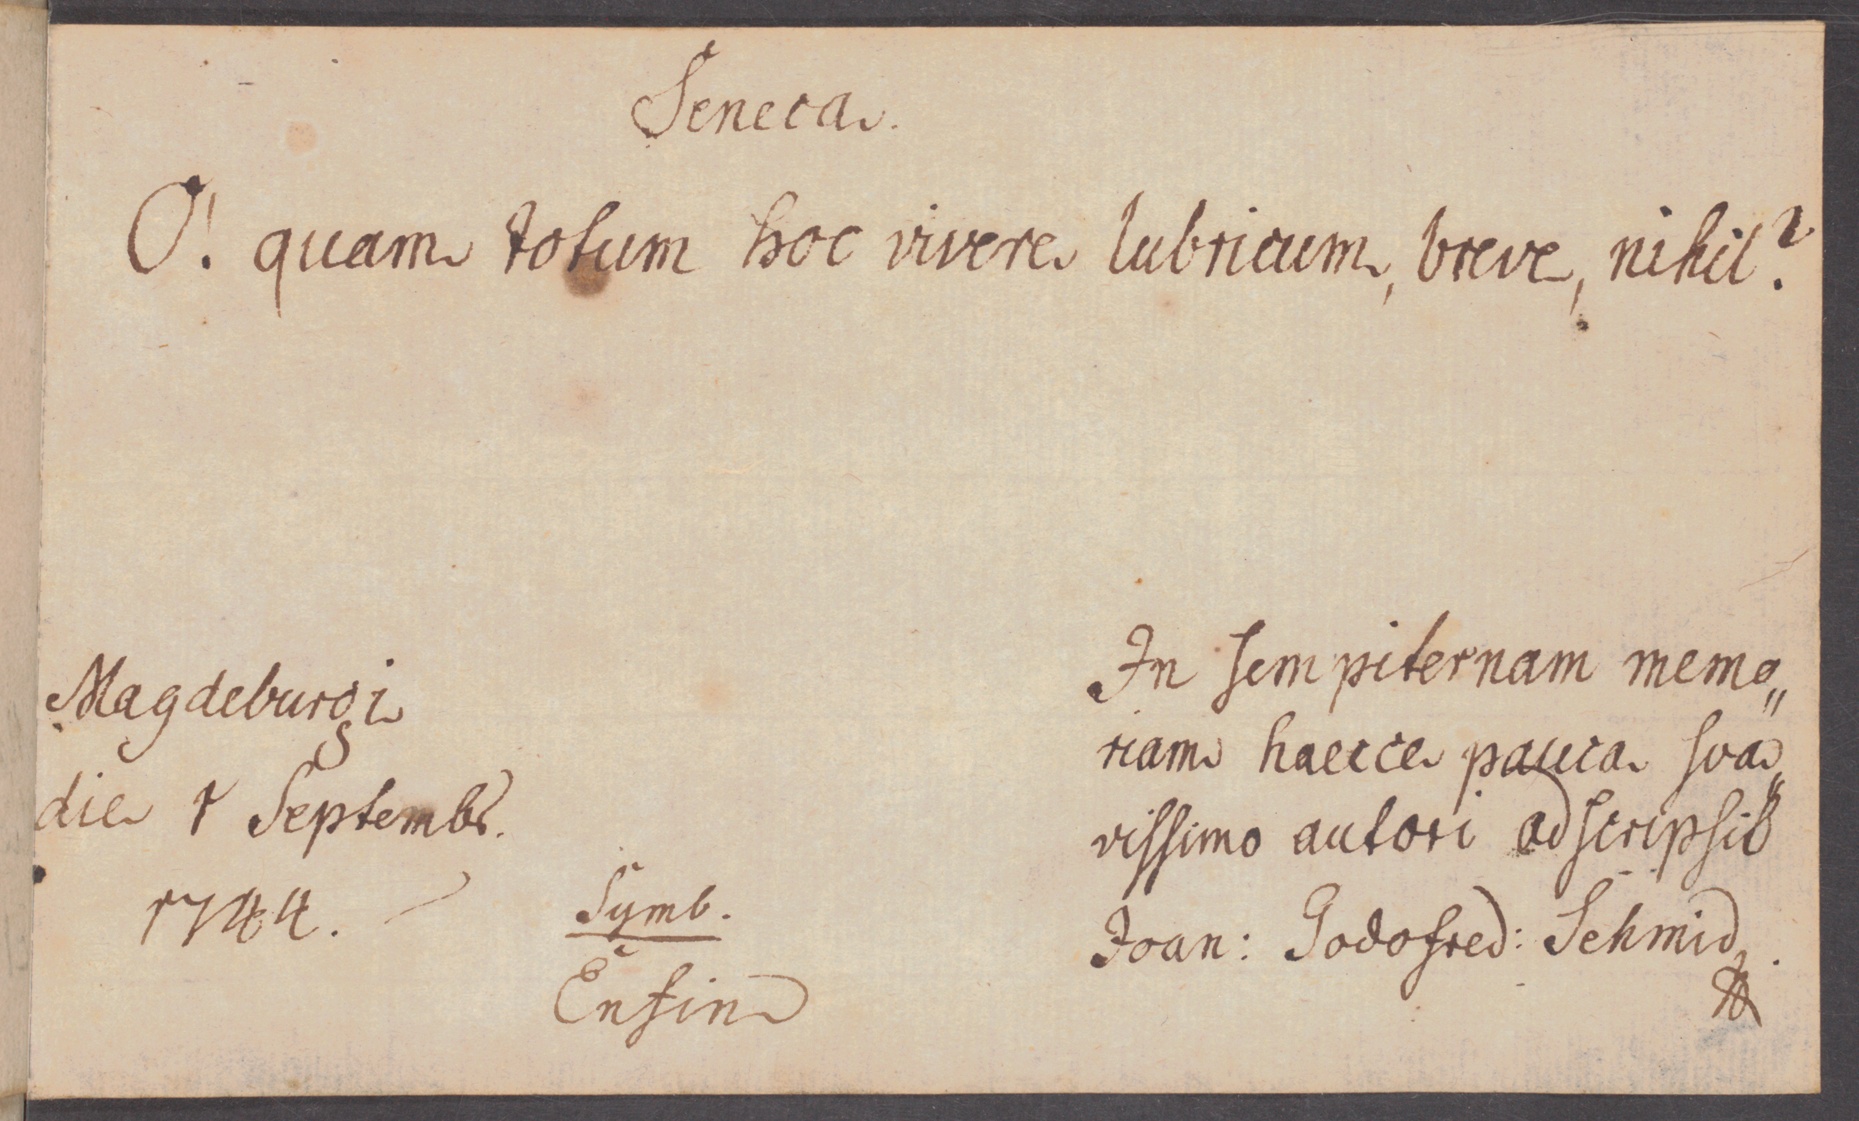 Seneca.
O! quam totum hoc vivere lubricum, breve, nihil?
Magdeburgi
die 1 Septembr.
1744.
Symb.
Enfin
In sempiternam memo„
riam haecce pauca sva„
vissimo autori adscripsit
Joan: Godofred: Schmid.